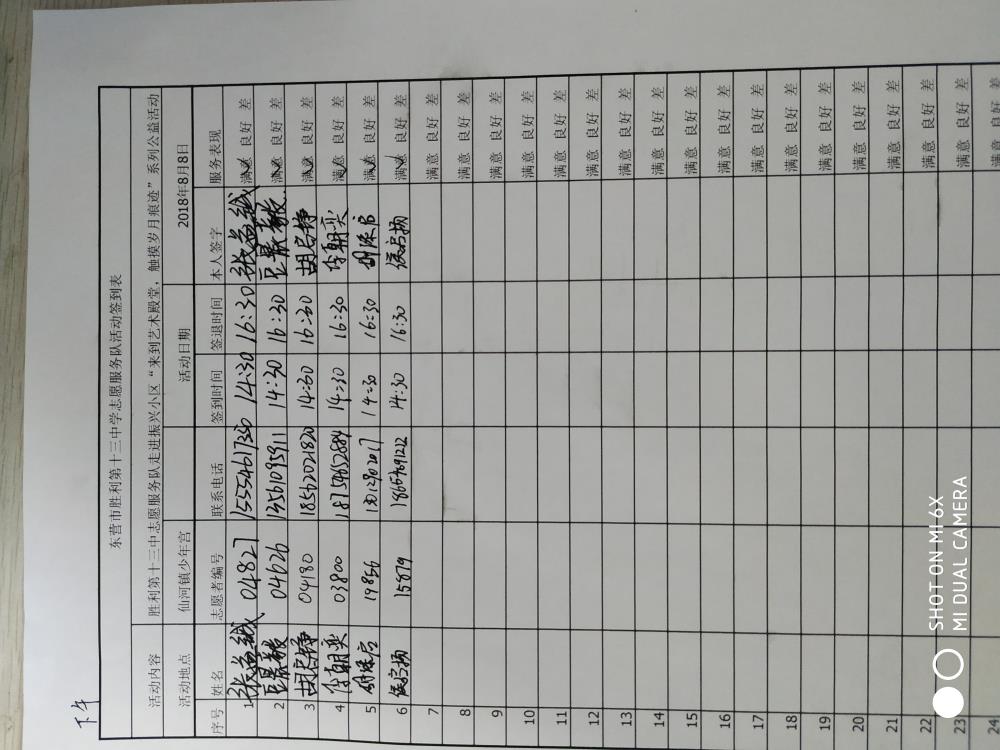 下午
东营市胜利第十三中学志愿服务队活动签到表
活动内容 胜利第十三中志愿服务队走进振兴小区“来到艺术殿堂，触摸岁月痕迹”系列公益活动
活动地点 仙河镇少年宫 活动日期 2018年8月8日
序号 姓名 志愿者编号 联系电话 签到时间 签退时间 本人签字 服务表现
1 张益诚 04827 15554617350 14:30 16:30 张益诚 满意 良好 差
2 04626 13561095911 14:30 16:30 满意 良好 差
3 04180 18562021820 14:30 16:30 满意 良好 差
4 李朝奕 03800 18754652884 14:30 16:30 李朝奕 满意 良好 差
5 19856 14:30 16:30 满意 良好 差
6 15879 14:30 16:30 满意 良好 差
7 满意 良好 差
8 满意 良好 差
9 满意 良好 差
10 满意 良好 差
11 满意 良好 差
12 满意 良好 差
13 满意 良好 差
14 满意 良好 差
15 满意 良好 差
16 满意 良好 差
17 满意 良好 差
18 满意 良好 差
19 满意 良好 差
20 满意 良好 差
21 满意 良好 差
22 满意 良好 差
23 满意 良好 差
24 满意 良好 差
SHOT ON MI 6X
MI DUAL CAMERA